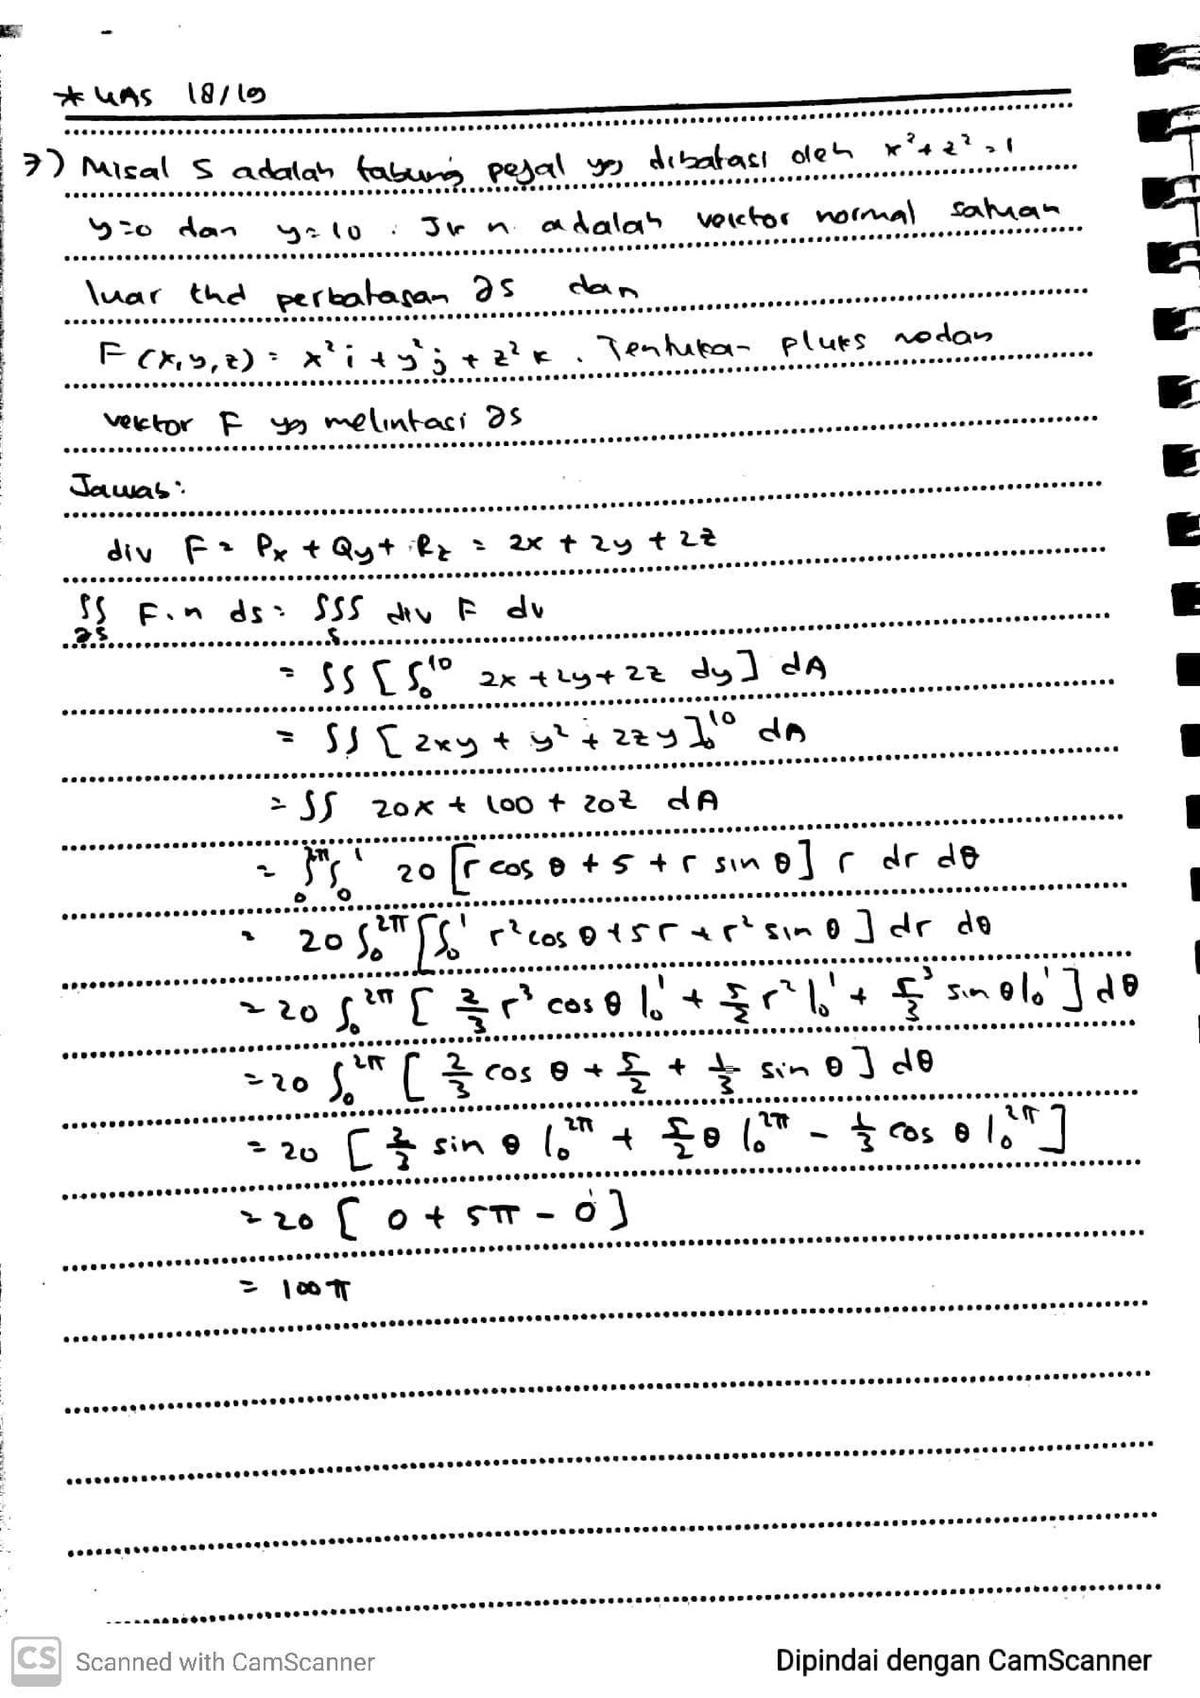 * UAS 18/19
7) Misal S adalah tabung pejal yg dibatasi oleh x²+z²=1
y=0 dan y=10. Jk n adalah vektor normal satuan
luar thd perbatasan ∂S dan
F(x,y,z) = x²i + y²j + z²k. Tentukan fluks
vektor F yg melintasi ∂S
Jawab:
div F = Px + Qy + Rz = 2x + 2y + 2z
∬∂S F.n ds = ∭S div F dv
= ∬ [∫₀¹⁰ 2x + 2y + 2z dy] dA
= ∬ [2xy + y² + 2zy]₀¹⁰ dA
= ∬ 20x + 100 + 20z dA
= ∫₀^2π ∫₀¹ 20 [r cos θ + 5 + r sin θ] r dr dθ
= 20 ∫₀^2π [∫₀¹ r² cos θ + 5r + r² sin θ] dr dθ
= 20 ∫₀^2π [2/3 r³ cos θ|₀¹ + 5/2 r²|₀¹ + r³/3 sin θ|₀¹] dθ
= 20 ∫₀^2π [2/3 cos θ + 5/2 + 1/3 sin θ] dθ
= 20 [2/3 sin θ|₀^2π + 5/2 θ|₀^2π - 1/3 cos θ|₀^2π]
= 20 [0 + 5π - 0]
= 100π
CS Scanned with CamScanner
Dipindai dengan CamScanner